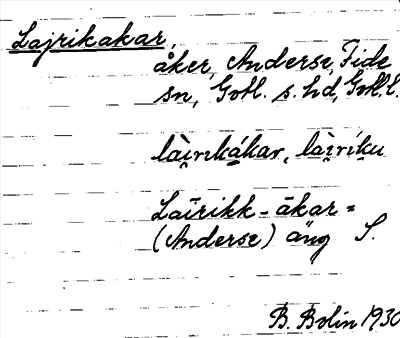 Lajrikakar,
åker, Anderse, Fide
sn, Gotl. s. hd, Gotl. l.
làiṛikákar, làiṛíku
Lairikk-åkar =
(Anderse) äng S.
B. Bolin 1930